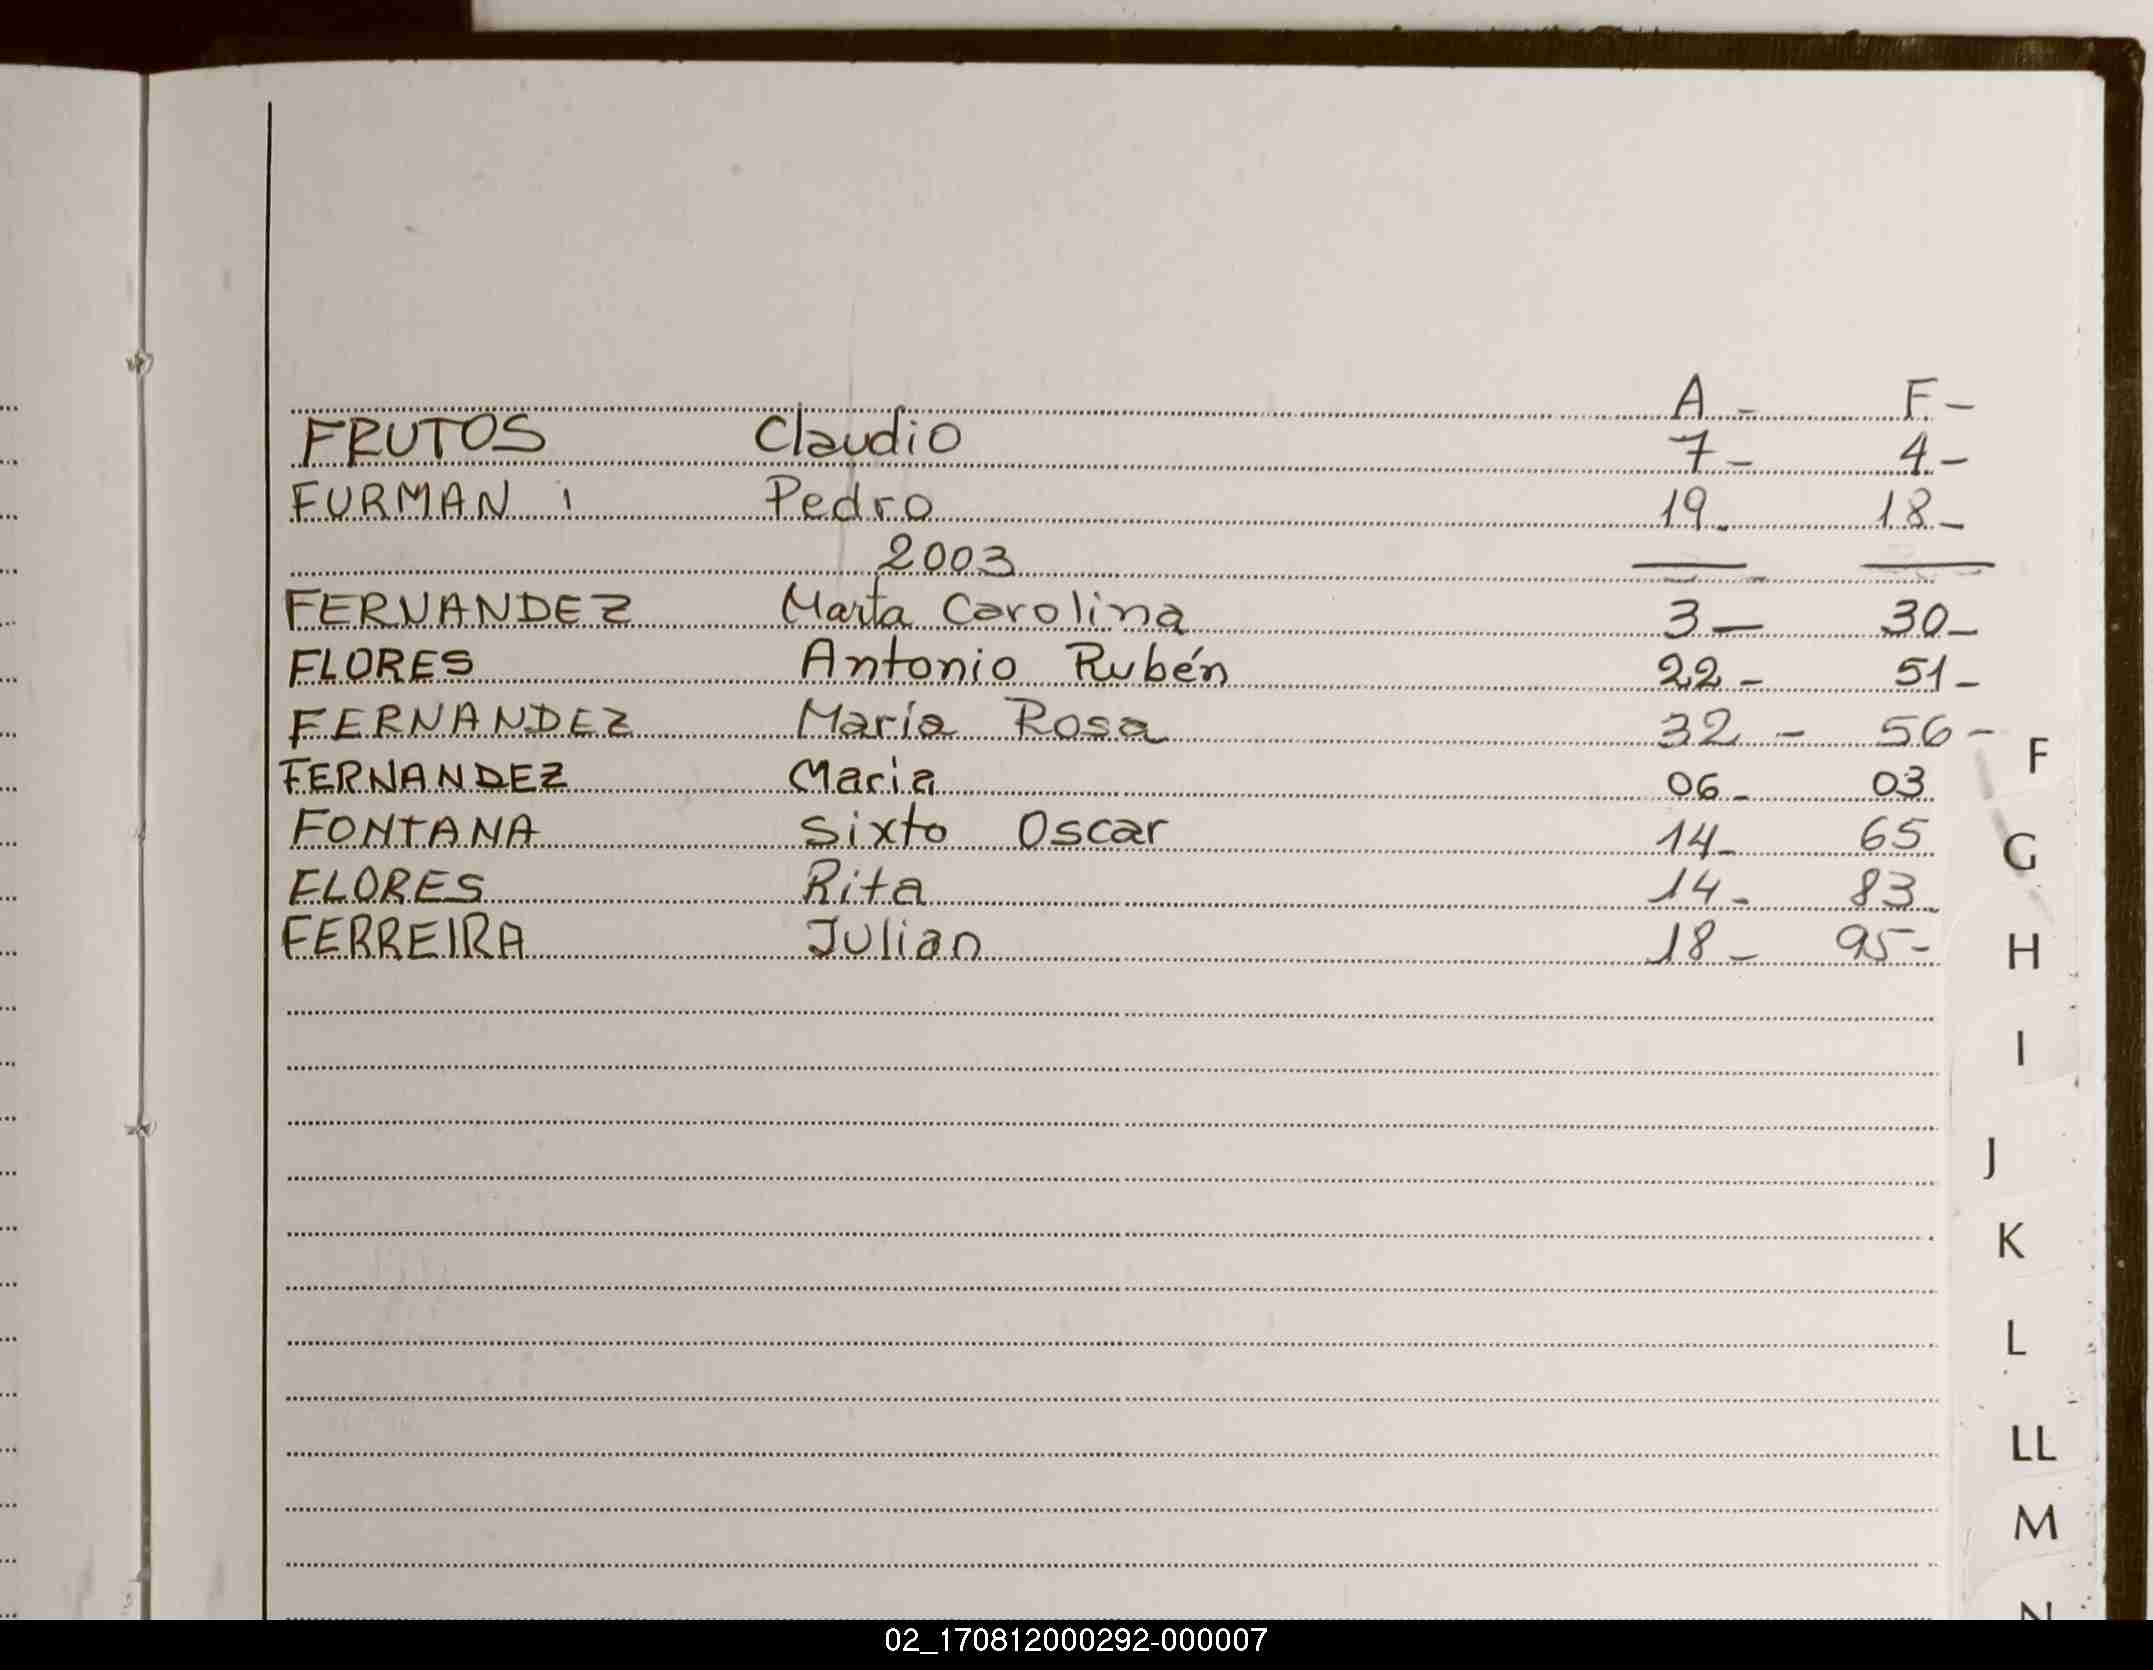 A - F -
FRUTOS Claudio 7 - 4 -
FURMAN Pedro 19 - 18 -
2003
FERNANDEZ Marta Carolina 3 - 30 -
FLORES Antonio Rubén 22 - 51 -
FERNANDEZ María Rosa 32 - 56 -
FERNANDEZ Maria 06 - 03
FONTANA Sixto Oscar 14 - 65
FLORES Rita 14 - 83
FERREIRA Julian 18 - 95 -
F
G
H
I
J
K
L
LL
M
N
02_170812000292-000007